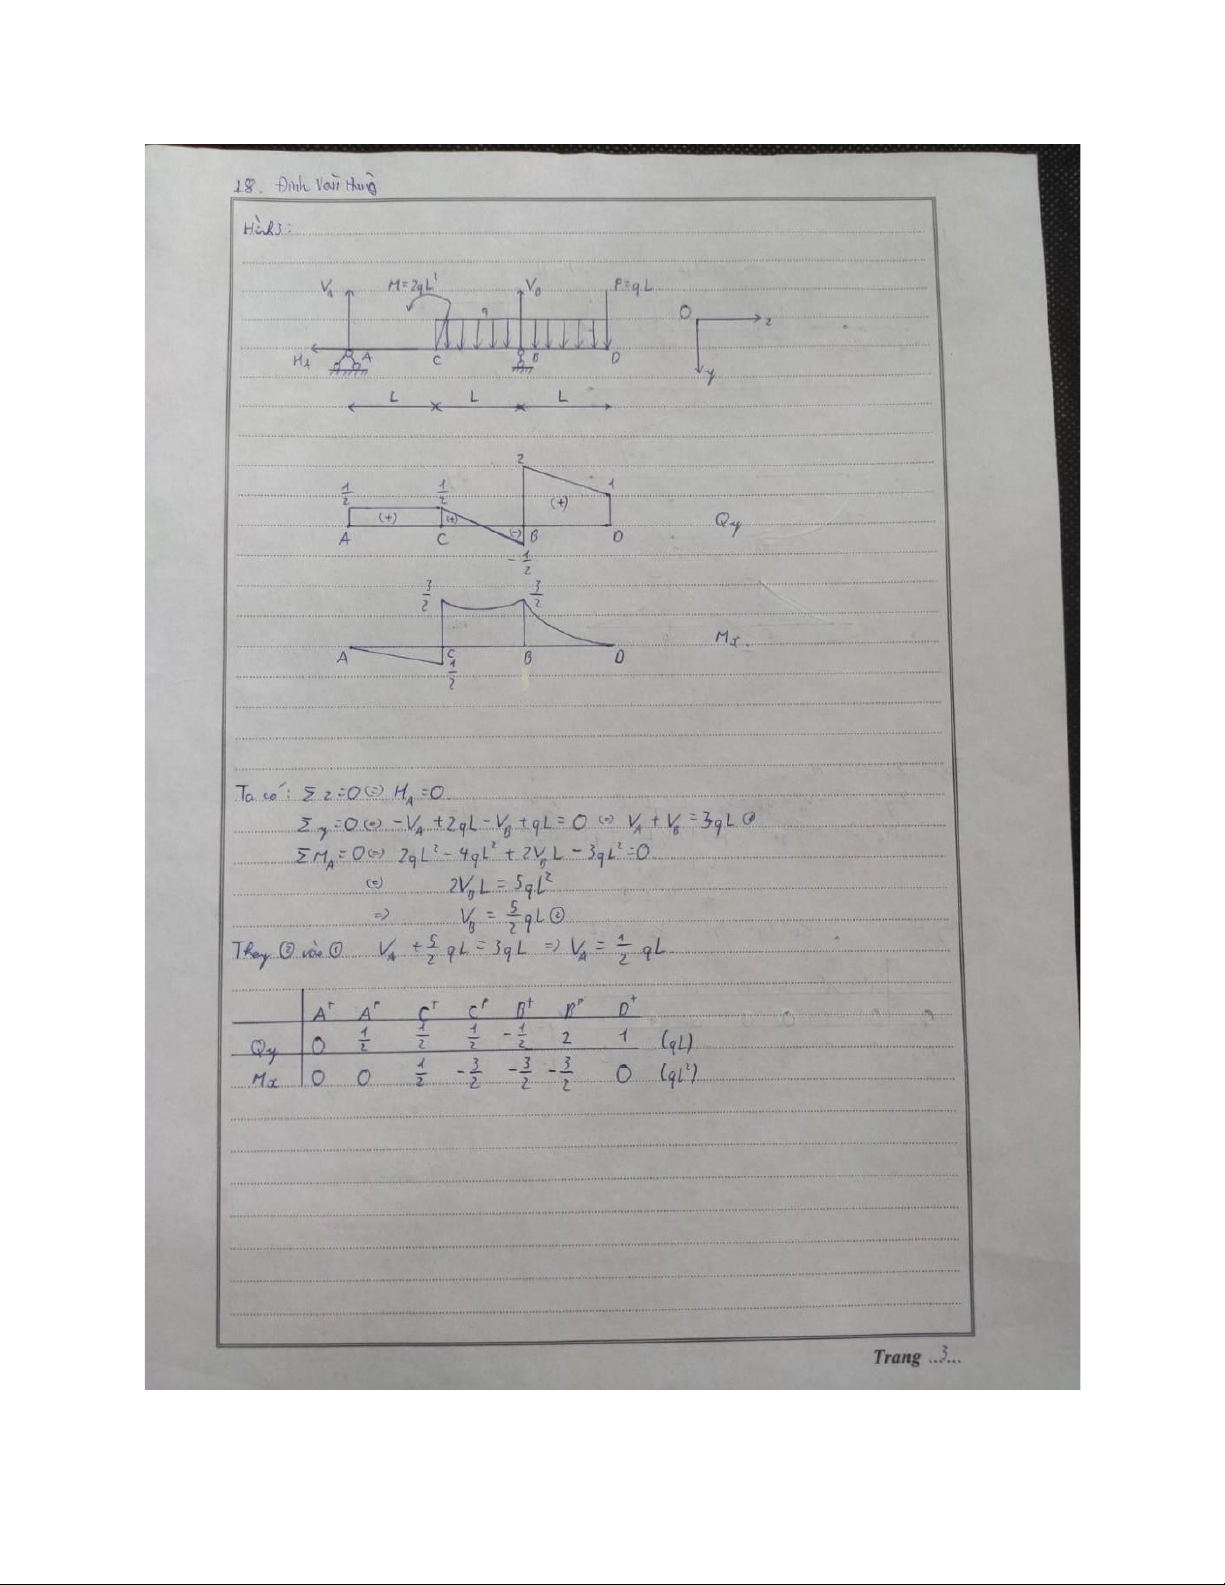 18. Đinh Văn
Hình 3:
V_A M = 2qL² V_B P = qL
q O z
H_A A C B D y
L L L
2
1/2 1/2 1
(+) (+) (-) (+) Qy
A C B D
-1/2
3/2 3/2
Mx
A C B D
1/2
Ta có: Σz = 0 (=) H_A = 0
Σy = 0 (=) -V_A + 2qL - V_B + qL = 0 (=) V_A + V_B = 3qL ①
ΣM_A = 0 (=) 2qL² - 4qL² + 2V_B L - 3qL² = 0
(=) 2V_B L = 5qL²
=> V_B = 5/2 qL ②
Thay ② vào ① V_A + 5/2 qL = 3qL => V_A = 1/2 qL
A^T A^P C^T C^P B^T B^P D^T
Qy 0 1/2 1/2 1/2 -1/2 2 1 (qL)
Mx 0 0 1/2 -3/2 -3/2 -3/2 0 (qL²)
Trang ...3...